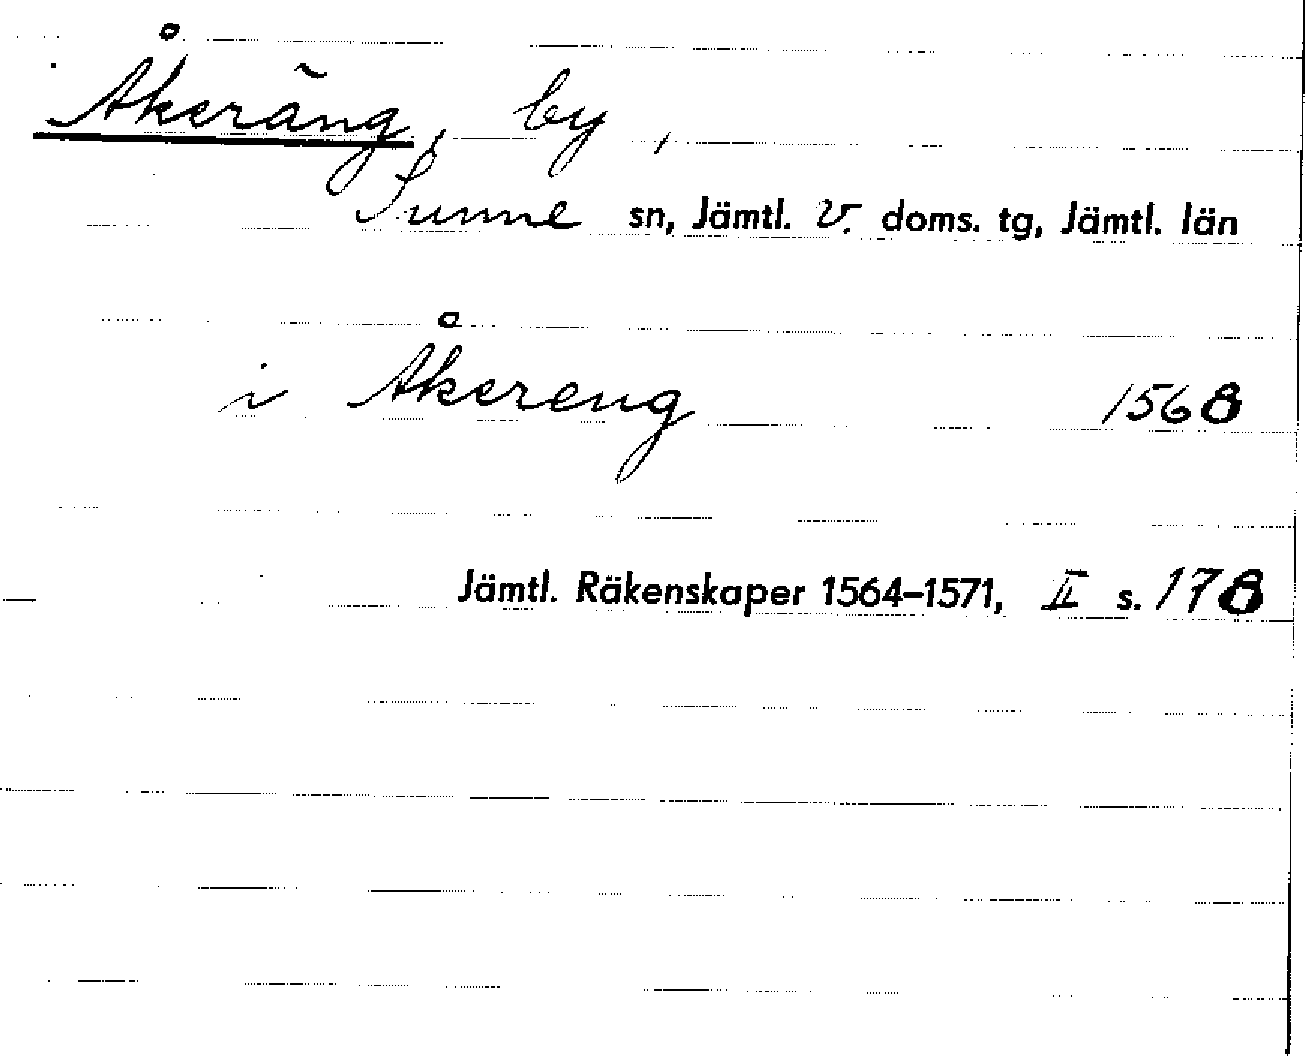 Åkeräng, by,
Sunne sn, Jämtl. V. doms. tg, Jämtl. län
i Åkereng 1568
Jämtl. Räkenskaper 1564–1571, II s. 178